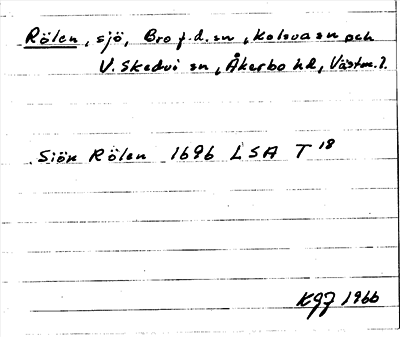 Rölen, sjö, Bro f.d. sn, Kolsva sn och
V. Skedvi sn, Åkerbo hd, Västm. l.
Sjön Rölen 1696 LSA T 18
KGJ 1966